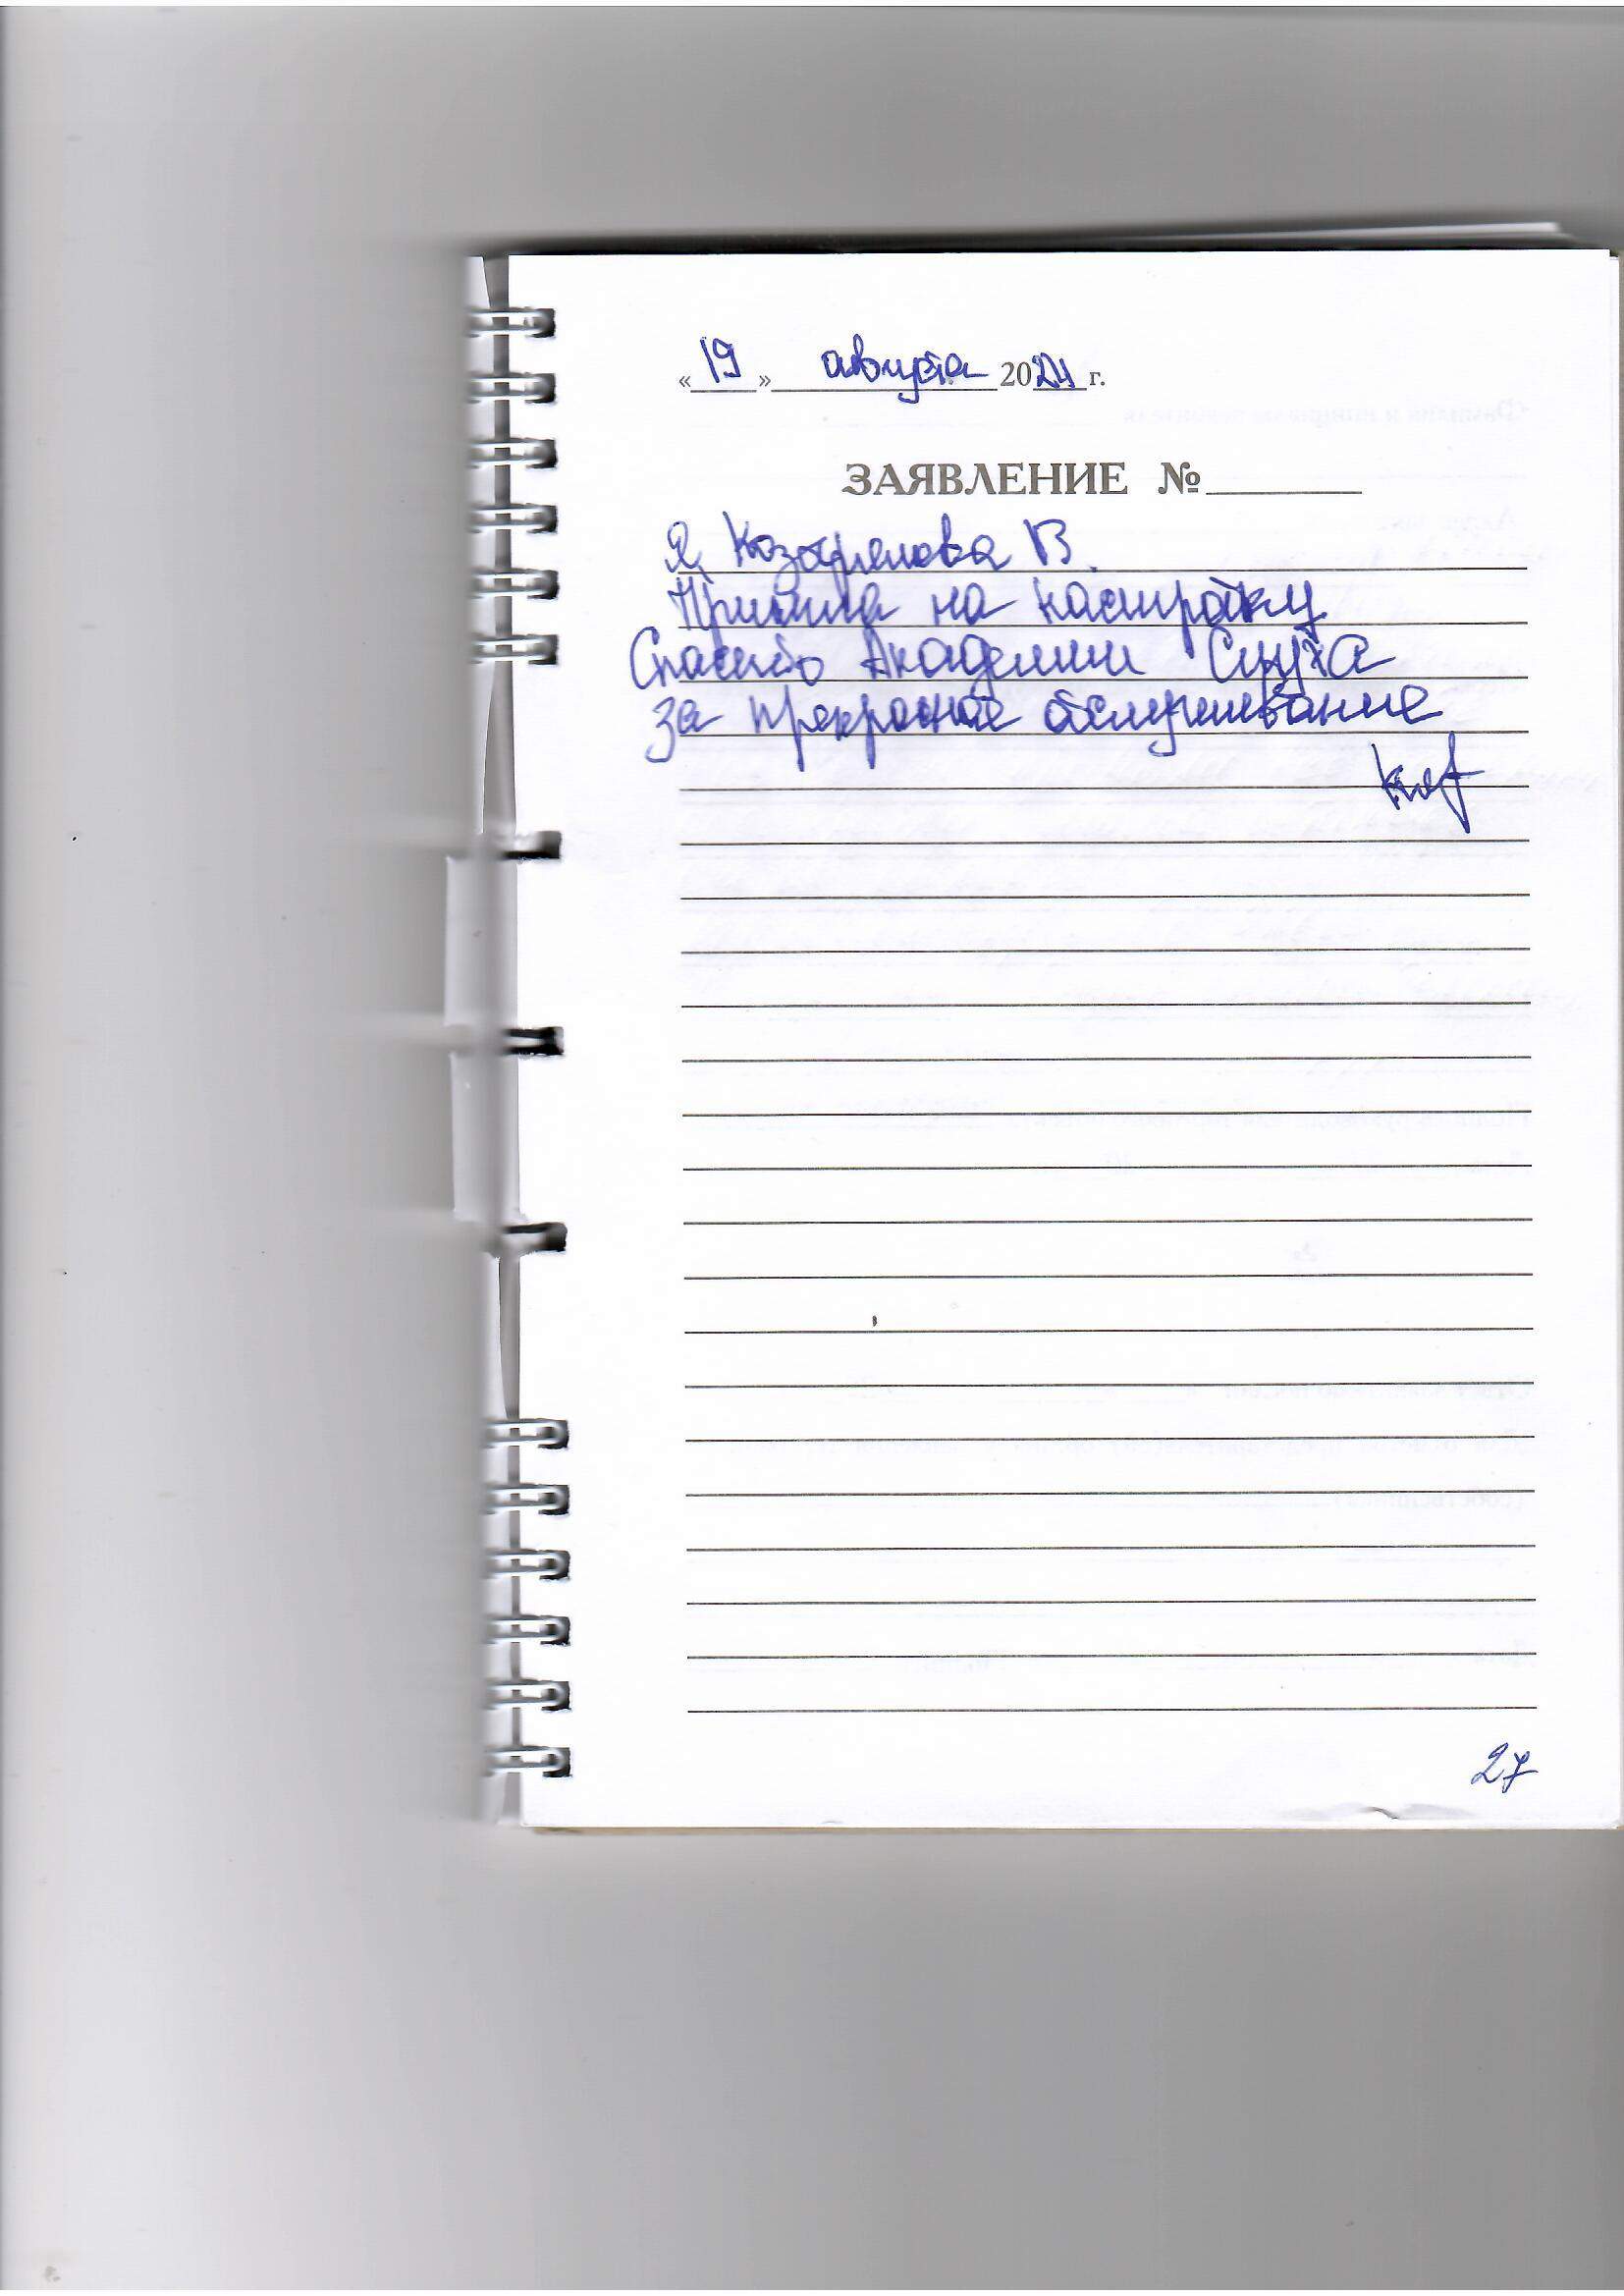 «19» августа 2024 г.
ЗАЯВЛЕНИЕ №
Я, В.
Пришла на настройку
Спасибо Академии Слуха
за прекрасное обслуживание
27